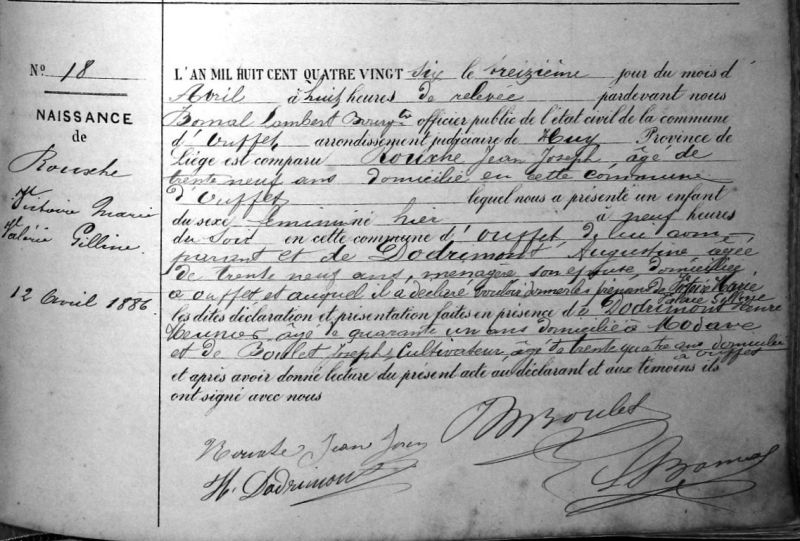 N° 18
NAISSANCE
de
Rouxhe
Victoire Marie
Valérie Gilline.
12 Avril 1886
L'AN MIL HUIT CENT QUATRE VINGT six le treizième jour du mois d'
Avril à huit heures de relevée pardevant nous
Bomal Lambert Bourgtre officier public de l'état civil de la commune
d'Ouffet arrondissement judiciaire de Huy Province de
Liége est comparu Rouxhe Jean Joseph, âgé de
trente neuf ans domicilié en cette commune
d'Ouffet lequel nous a présenté un enfant
du sexe féminin né hier à neuf heures
du Soir en cette commune d'Ouffet, de lui com-
parant et de Dodrimont Augustine agée
de trente neuf ans, menagere son epouse domiciliée
a ouffet et auquel il a déclaré vouloir donner les prénoms de Victoire Marie
Valerie Gilline
les dites déclaration et présentation faites en présence de Dodrimont Henri
âgé de quarante un ans domicilié à Modave
et de Boulet Joseph, Cultivateur, âgé de trente quatre ans domicilié
à ouffet
et après avoir donné lecture du présent acte au déclarant et aux témoins ils
ont signé avec nous
Rouxhe Jean Joseph
Boulet
H. Dodrimont
L Bomal